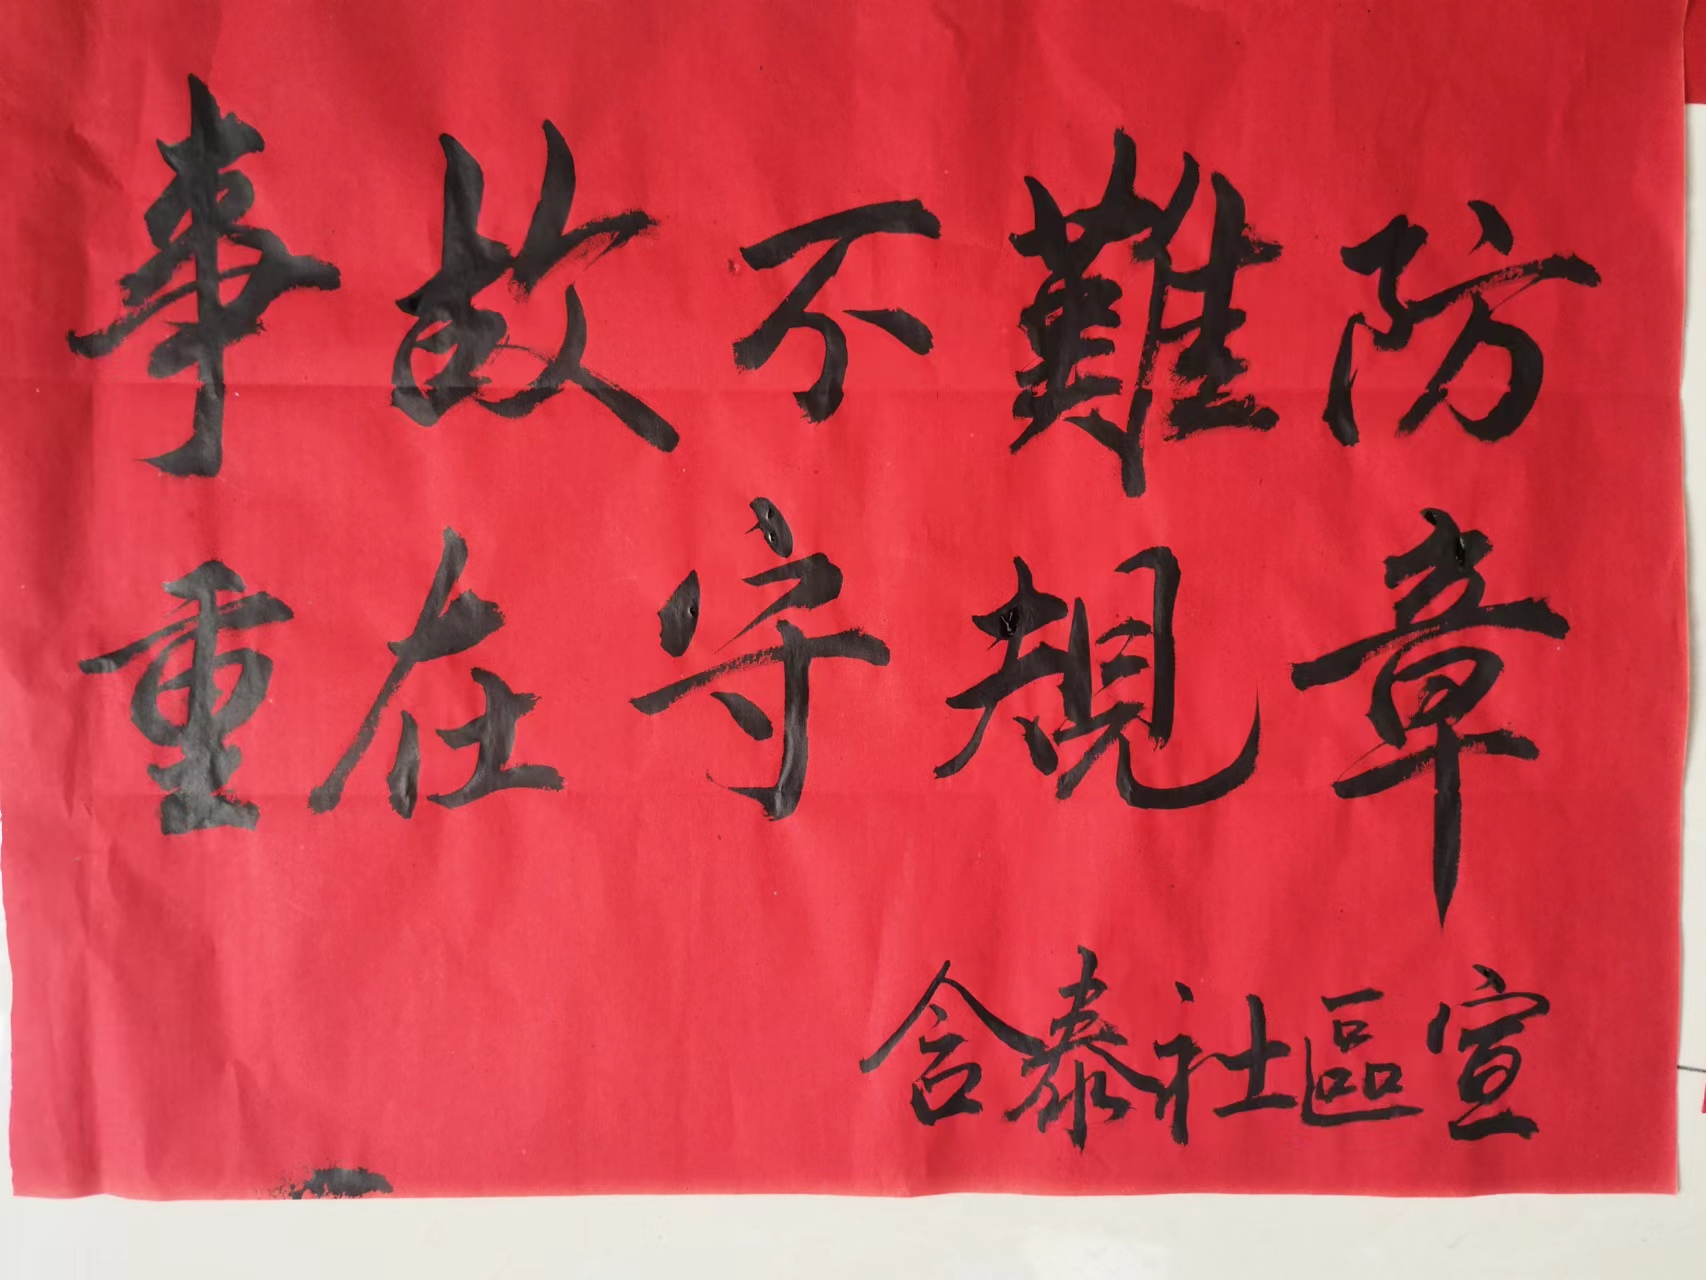 事故不難防
重在守規章
含泰社區宣